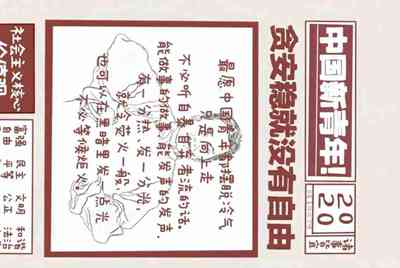 中国新青年!
2020
诸事皆宜
贪安稳就没有自由
最愿中国青年都摆脱冷气
只是向上走
不必听自暴自弃者流的话。
能做事的做事,能发声的发声。
有一分热,发一分光,
就令萤火一般,
也可以在黑暗里发一点光
不必等候炬火。
社会主义核心
价值观
富强 民主 文明 和谐
自由 平等 公正 法治